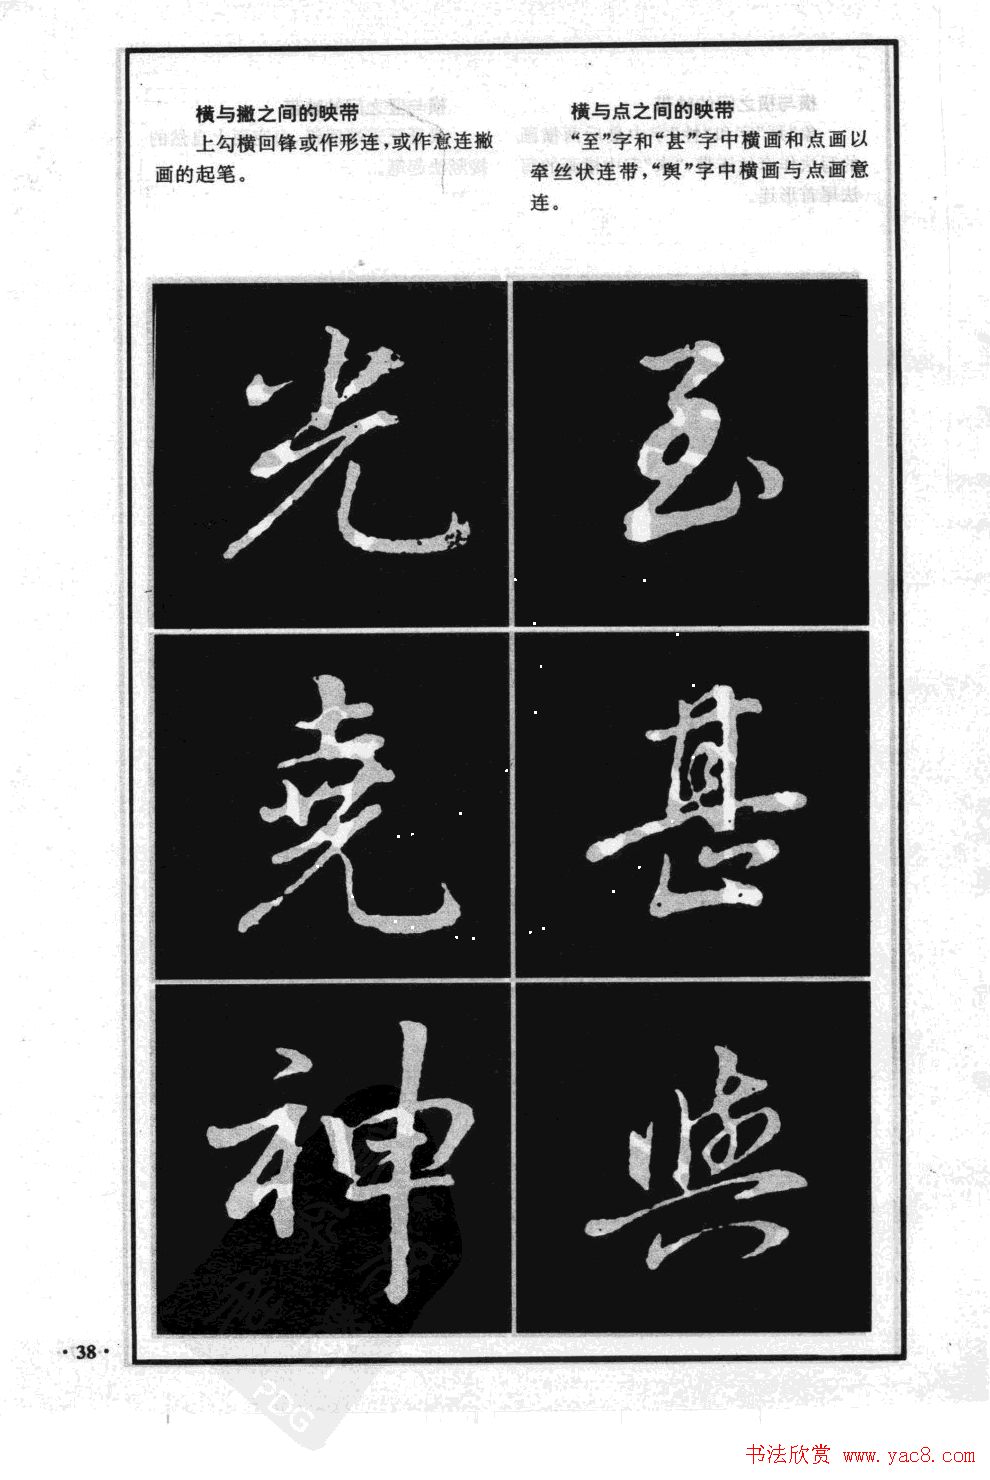 横与撇之间的映带
上勾横回锋或作形连，或作意连撇
画的起笔。
横与点之间的映带
“至”字和“甚”字中横画和点画以
牵丝状连带，“舆”字中横画与点画意
连。
光
至
尧
甚
神
舆
·38·
PDG
书法欣赏 www.yac8.com